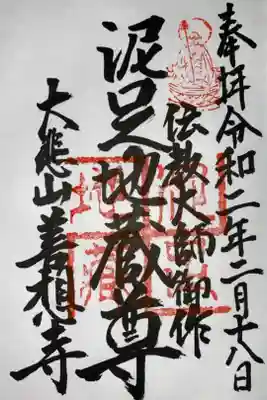 奉拝令和二年二月十八日
伝教大師御作
泥足地蔵尊
大悲山善想寺